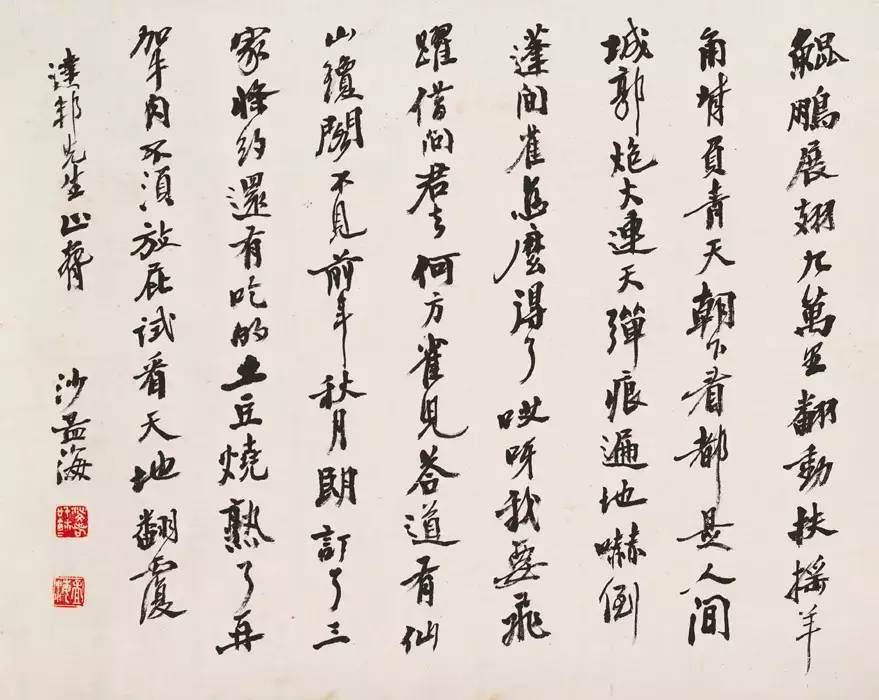 鯤鵬展翅九萬里翻動扶搖羊
角背負青天朝下看都是人間
城郭炮火連天彈痕遍地嚇倒
蓬間雀怎麼得了哎呀我要飛
躍借問君去何方雀兒答道有仙
山瓊閣不見前年秋月朗訂了三
家條約還有吃的土豆燒熟了再
加牛肉不須放屁試看天地翻覆
達邦先生正 沙孟海